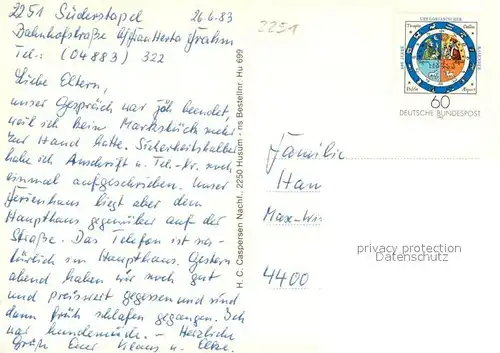 2251 Süderstapel 26.6.83
Bahnhofstraße b/Frau Herta Frahm
Tel.: (04883) 322
Liebe Eltern,
unser Gespräch war jäh beendet,
weil ich kein Markstück mehr
zur Hand hatte. Sicherheitshalber
habe ich Anschrift u. Tel.-Nr. noch
einmal aufgeschrieben. Unser
Ferienhaus liegt aber dem
Haupthaus gegenüber auf der
Straße. Das Telefon ist na-
türlich im Haupthaus. Gestern
abend haben wir noch gut
und preiswert gegessen und sind
dann früh schlafen gegangen. Ich
war hundemüde. – Herzliche
Grüße Euer Klaus u. Elke.
H. C. Caspersen Nachf., 2250 Husum - ns Bestellnr. Hu 699
2251
GREGORIANISCHER
KALENDER
60
DEUTSCHE BUNDESPOST
Familie
Han
Max-Wis
4400
privacy protection
Datenschutz